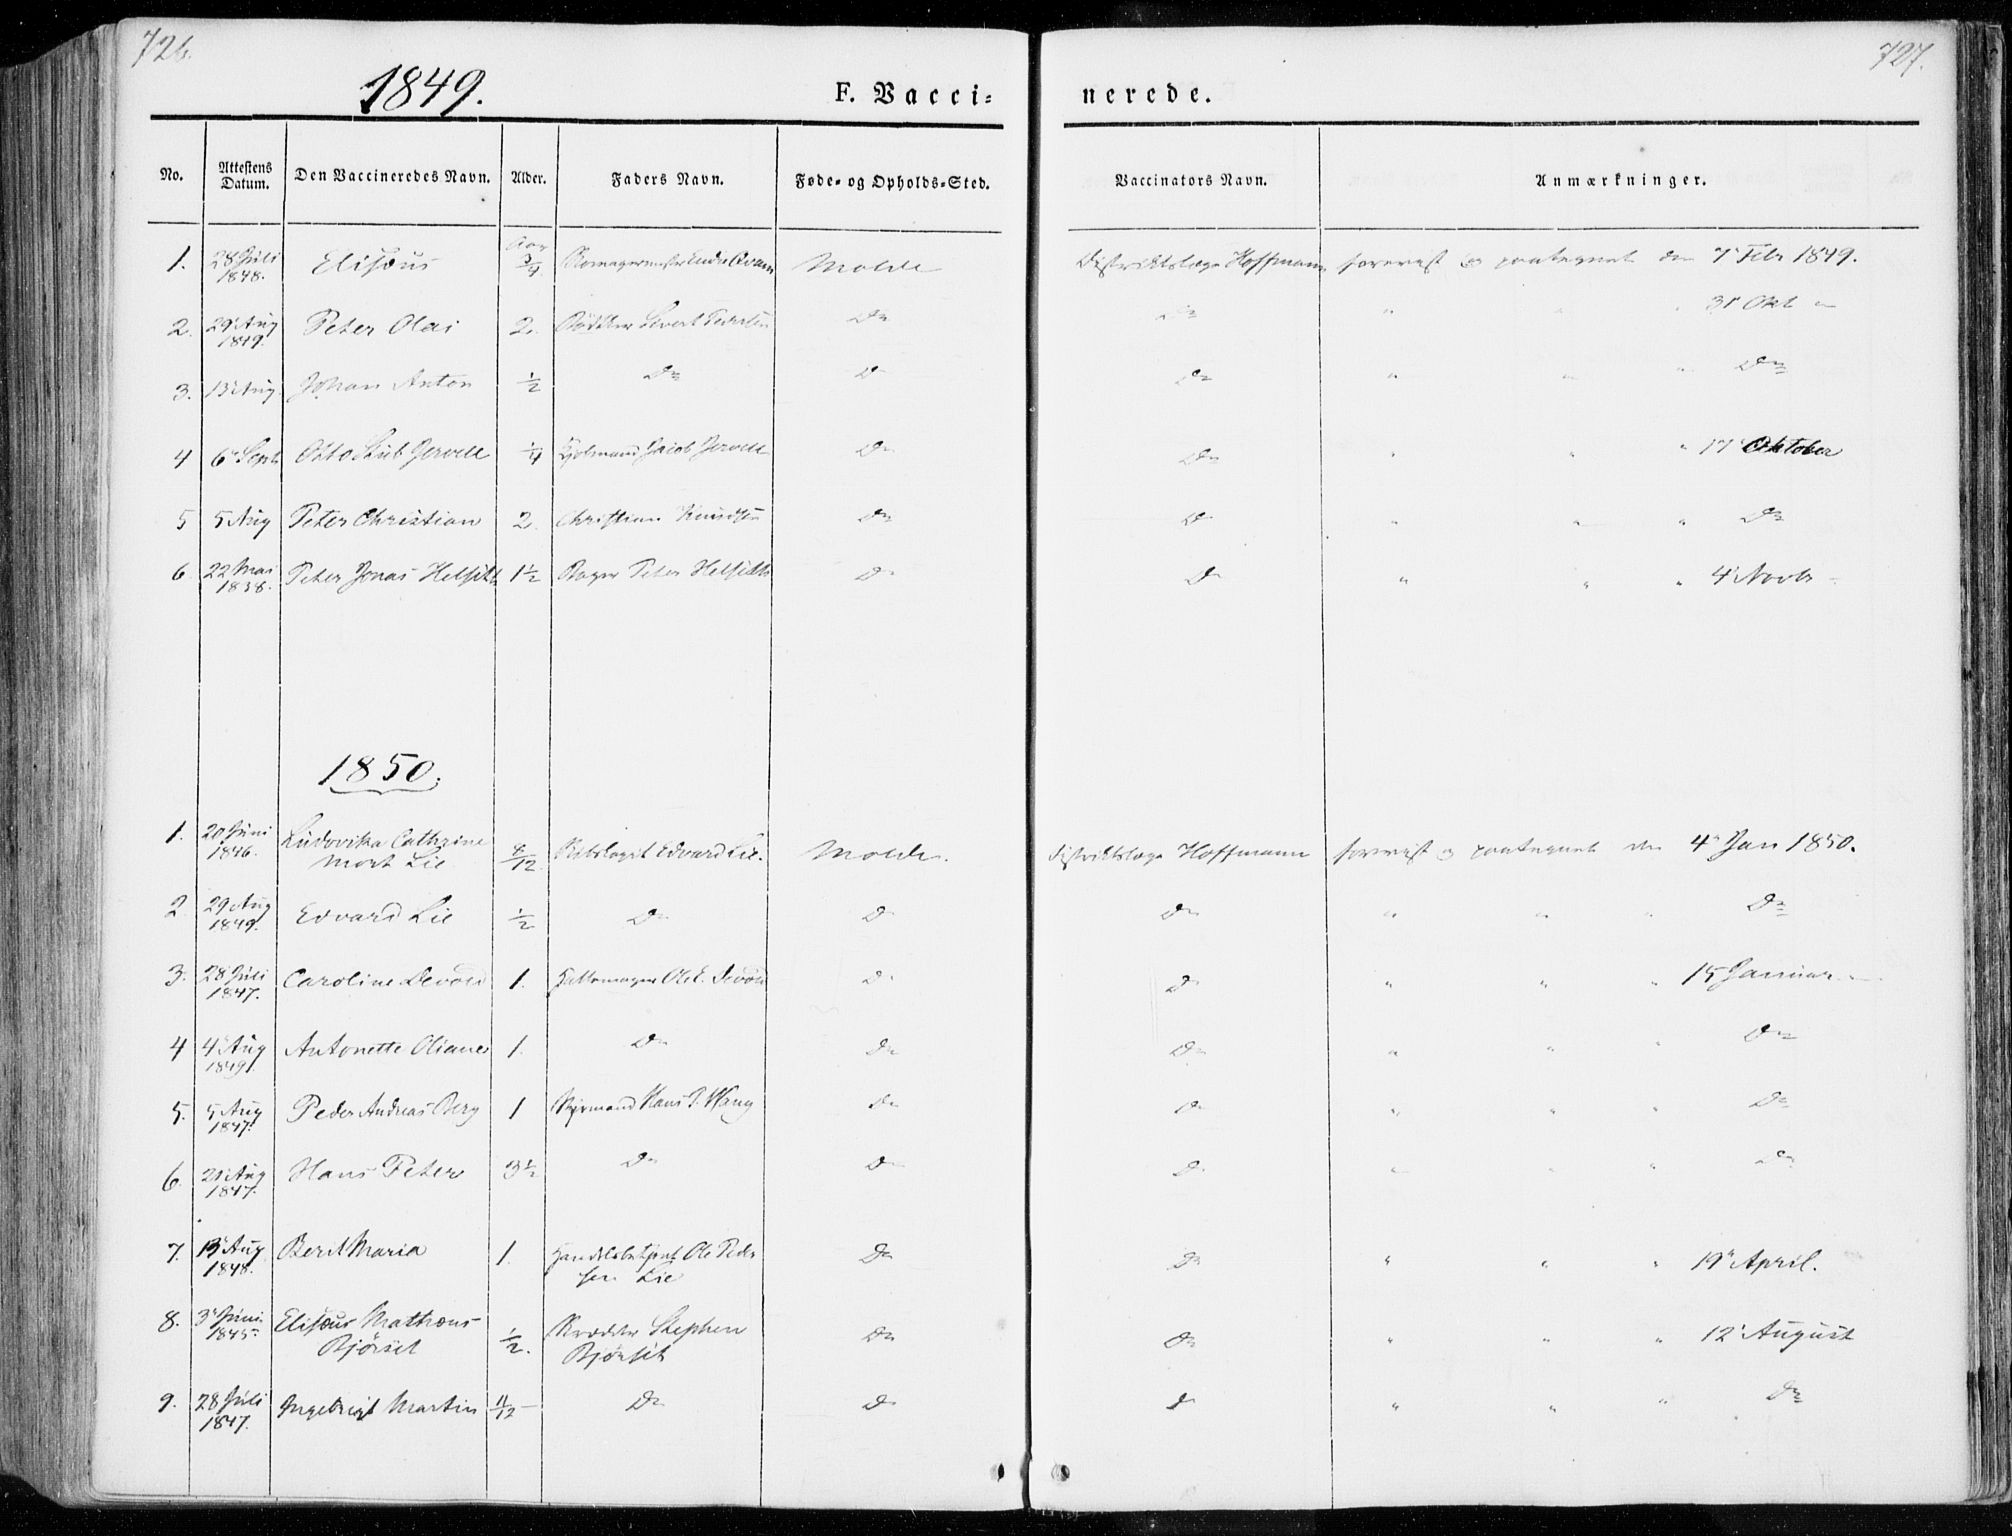 726.
727.
1849.
F. Vacci=
nerede.
No.
Attestens Datum.
Den Vaccineredes Navn.
Alder.
Faders Navn.
Føde- og Opholds-Sted.
Vaccinators Navn.
Anmærkninger.
1. 28 Juli 1848. Elisæus Aar 3/4 Molde Distriktslæge Hoffmann forevist og paategnet den 7' Feb 1849.
2. 29 Aug 1849. Peter Olai 2. Bødker Sivert Pedersen Do Do " " " 31' Okt
3. 13 Aug Johan Anton 1/2 Do Do Do " " " Do
4 6' Sept Otto Stub Jervell 1/4 Kjøbmand Jacob Jervell Do Do " " " 17' Oktober
5 5 Aug Peter Christian 2. Christian Knudsen Do Do " " " Do
6. 22 Mai 1838. Peter Jonas Helseth 1 1/2 Bager Peter Helseth Do Do " " " 4' Novbr
1850.
1. 20 Juni 1846. Ludovika Cathrine
Mork Lie 8/12 Edvard Lie. Molde. Distriktslæge Hoffmann forevist og paategnet den 4' Jan 1850.
2. 29 Aug 1849. Edvard Lie 1/2 Do Do Do " " " Do
3. 28 Juli 1847. Caroline Devold 1. Hattemager Ole E. Devold Do Do " " " 15 Januar
4 4' Aug 1849. Antonette Oliane 1. Do Do Do " " " Do
5. 5 Aug 1847. Peder Andreas Berg 1 Hans P. Do Do " " " Do
6. 21' Aug 1847. Hans Peter 3 1/2 Do Do Do " " " Do
7. 13' Aug 1848. Berit Maria 1. Handelsbetjent Ole Peder
sen Lie Do Do " " " 19' April.
8. 3' Juni 1845 Elisæus Mathæus
Bjørset 1/2. Skrædder Stephen
Bjørset Do Do " " " 12' August
9. 28 Juli 1847. Ingebrigt Martin 11/12 Do Do Do " " " Do